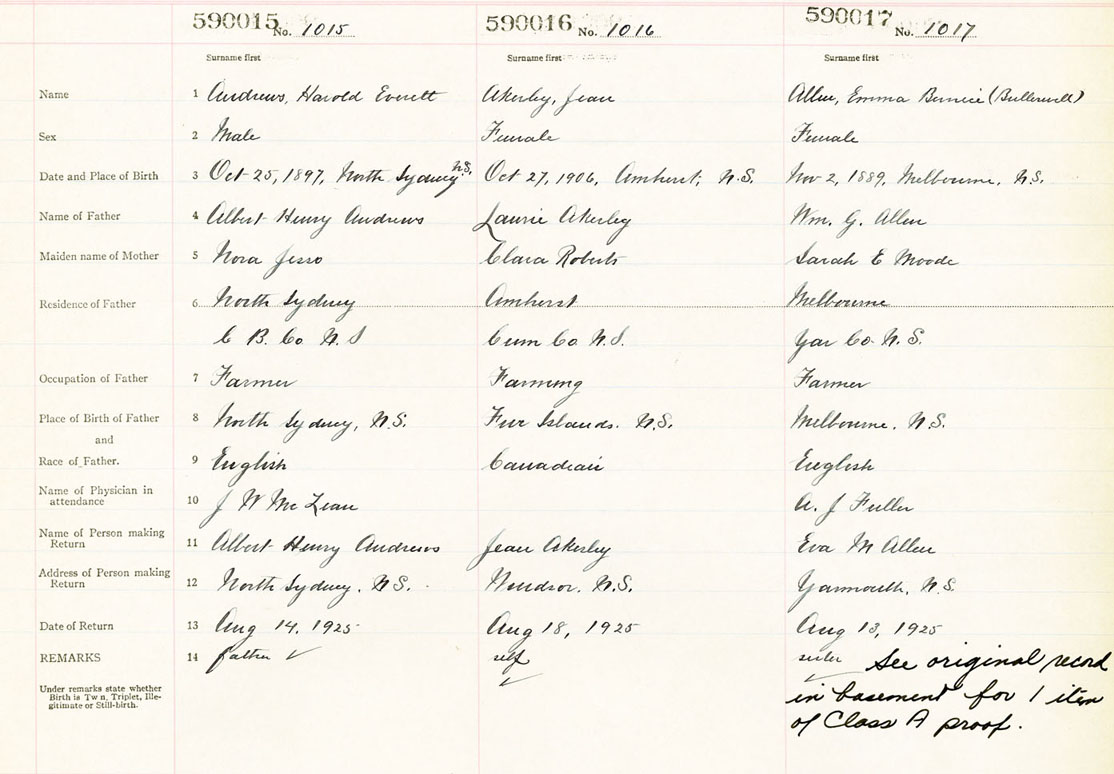 590015 No. 1015 590016 No. 1016 590017 No. 1017
Surname first Surname first Surname first
Name 1 Andrews, Harold Everett Akerley, Jean Allen, Emma Bernice (Butlerwell)
Sex 2 Male Female Female
Date and Place of Birth 3 Oct 25, 1897, North Sydney N.S. Oct 27, 1906, Amherst, N.S. Nov 2, 1889, Melbourne, N.S.
Name of Father 4 Albert Henry Andrews Laurie Akerley Wm. G. Allen
Maiden name of Mother 5 Nora Jesso Clara Roberts Sarah E Moode
Residence of Father 6 North Sydney Amherst Melbourne
C B. Co N.S Cum Co N.S. Yar Co. N.S.
Occupation of Father 7 Farmer Farming Farmer
Place of Birth of Father 8 North Sydney, N.S. Five Islands. N.S. Melbourne, N.S.
and
Race of Father. 9 English Canadian English
Name of Physician in
attendance 10 J W McLean A. J Fuller
Name of Person making
Return 11 Albert Henry Andrews Jean Akerley Eva M Allen
Address of Person making
Return 12 North Sydney. N.S. Windsor. N.S. Yarmouth, N.S.
Date of Return 13 Aug 14, 1925 Aug 18, 1925 Aug 13, 1925
REMARKS 14 father self sister See original record
Under remarks state whether
Birth is Tw n, Triplet, Ille-
gitimate or Still-birth.
in basement for 1 item
of Class A proof.